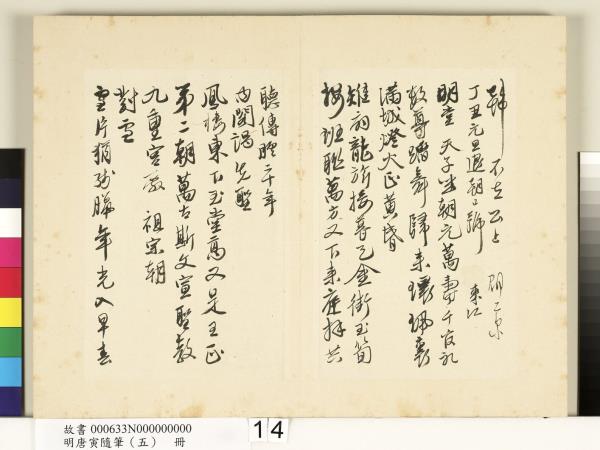 丁丑元旦退朝口號 東江
明堂天子坐朝元萬壽千官礼
數尊蹈舞歸來環珮裊
滿城燈火正黃昏
雉扇龍旂接 金街玉筍
班聯萬方又下東庭拜共
聽傳 二十年
內閣謁先聖
鳳樓東下玉堂高又是王正
第一朝萬古斯文宣聖教
九重宮 祖宗朝
對雪
雪片猶殘臘年光入早春
14
故書 000633N000000000
明唐寅隨筆（五） 冊